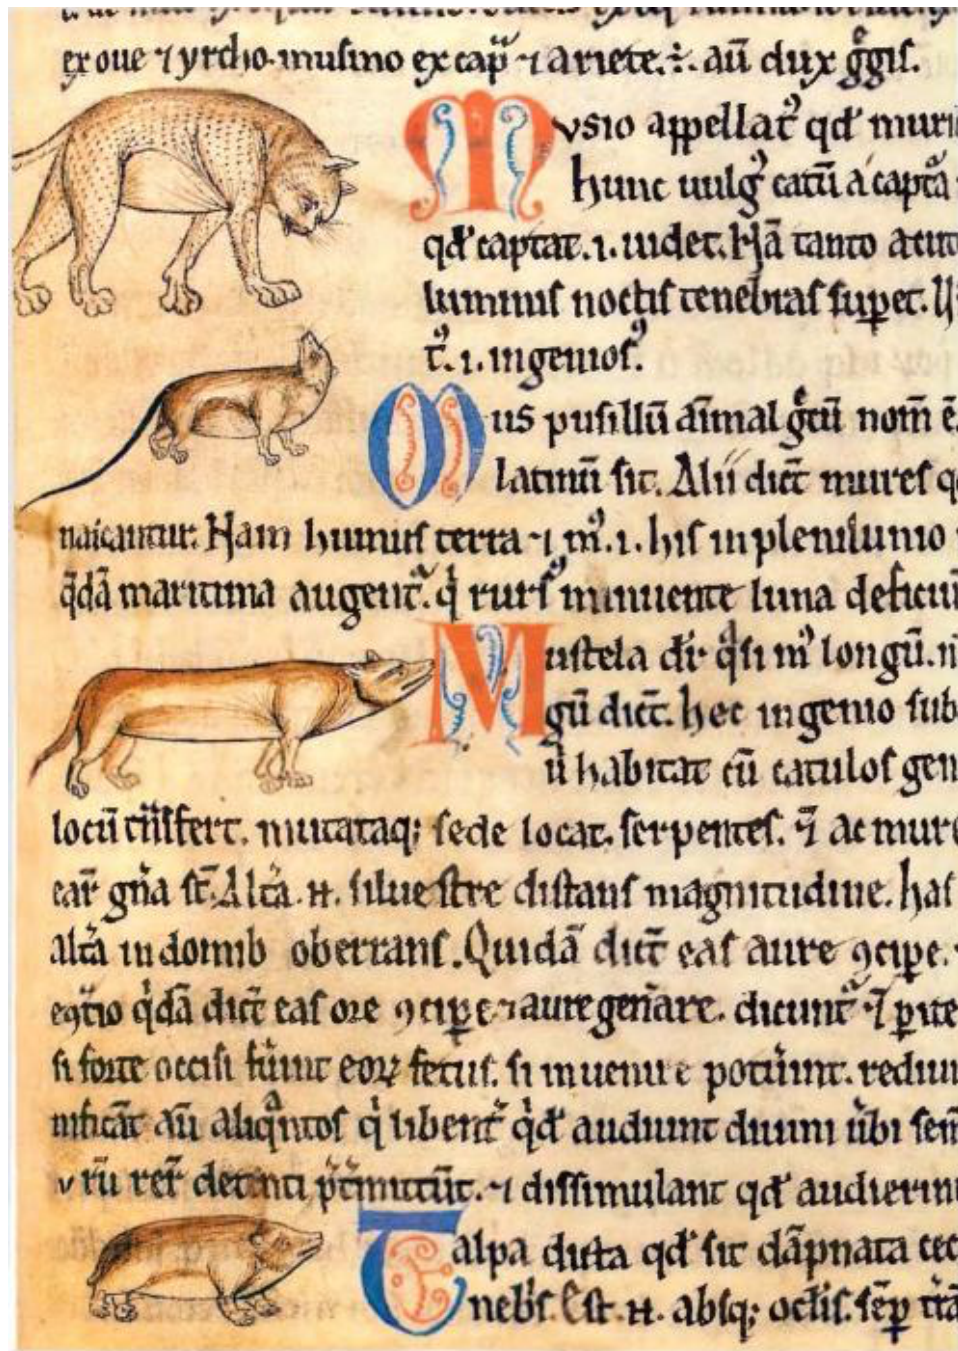 ex oue ⁊ yrcho. musino ex cap̃ ⁊ ariete. aũ dux g̃gis.
Musio appellat᷒ qđ muri
hunc uulg᷒ catũ a capt̃a
qđ captat. i. uidet. Nã tanto acut
luminis noctis tenebras suꝑet.
t᷒. i. ingenios᷒.
Mus pusillũ añimal g̃cũ nom̃ ẽ
latinũ sit. Alii dict̃ mures
nascantur. Nam humus terra ⁊ m᷒. i. his in plenilunio
q̃dã maritima augent᷒. q̇ rurs᷒ minuente luna deficiũ
Mustela dr̃ q̃si m᷒ longũ.
gũ dict̃. hec ingenio sub
ũ habitat cũ catulos gen
locũ t̃nsfert. mutataq; sede locat. serpentes. ⁊ ac mure
ear̃ g̃na st̃. Alt̃a. N. siluestre distans magnitudine. has
alt̃a in domib oberrans. Quidã dict̃ eas aure ꝯciꝑe.
q̇dã dict̃ eas ore ꝯciꝑe ⁊ aure geñare. dicunt᷒ ⁊ ꝑite
si forte occisi fũint eoꝝ fetus. si inuenire potũint. rediui
nificãt aũ aliq̃ntos q̇ libent̃ qđ audiunt diuini ũbi sem̃
detenti p̃t̃mittũt. ⁊ dissimulant qđ audierint
Talpa dicta qđ sit dãpnata cec
neb̃s. Est. N. absq; oc̃lis. sẽꝑ t̃rã